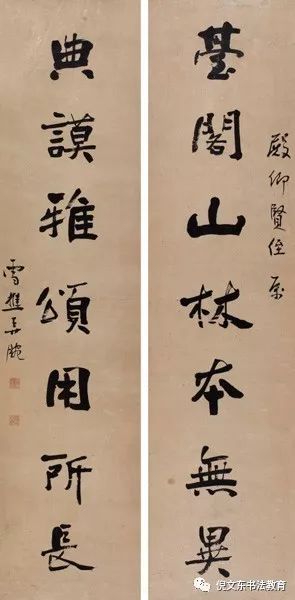 殿仰賢侄
臺閣山林本無異
典謨雅頌用所長
雪樵
倪文东书法教育